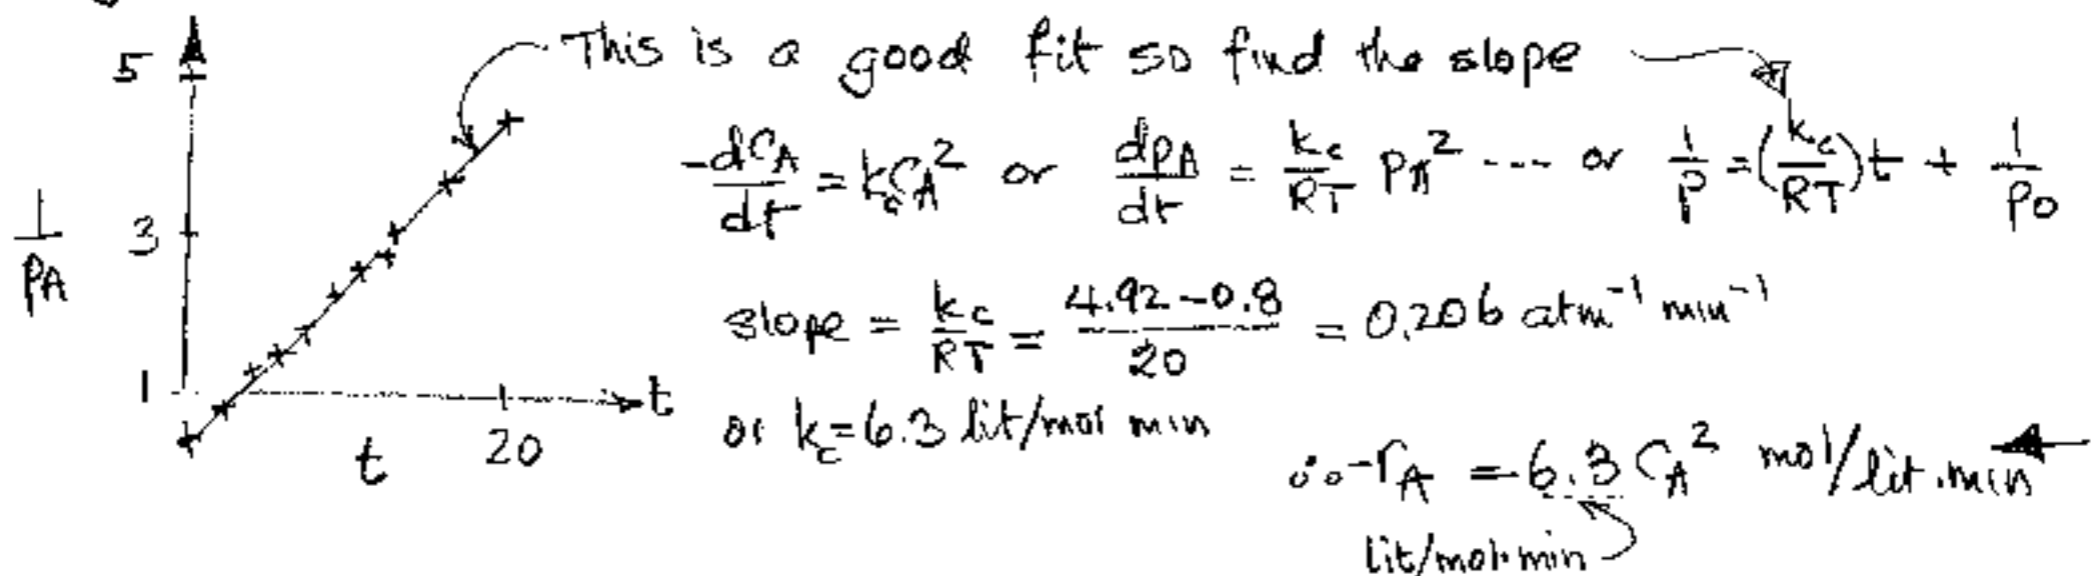 This is a good fit so find the slope
5
3
1
1/PA
t
20
t
-dCA/dt = kcCA² or dpA/dt = kc/RT PA² --- or 1/P = (kc/RT)t + 1/P0
slope = kc/RT = 4.92-0.8/20 = 0.206 atm⁻¹ min⁻¹
or kc=6.3 lit/mol min
∴ -rA = 6.3 CA² mol/lit.min
lit/mol·min